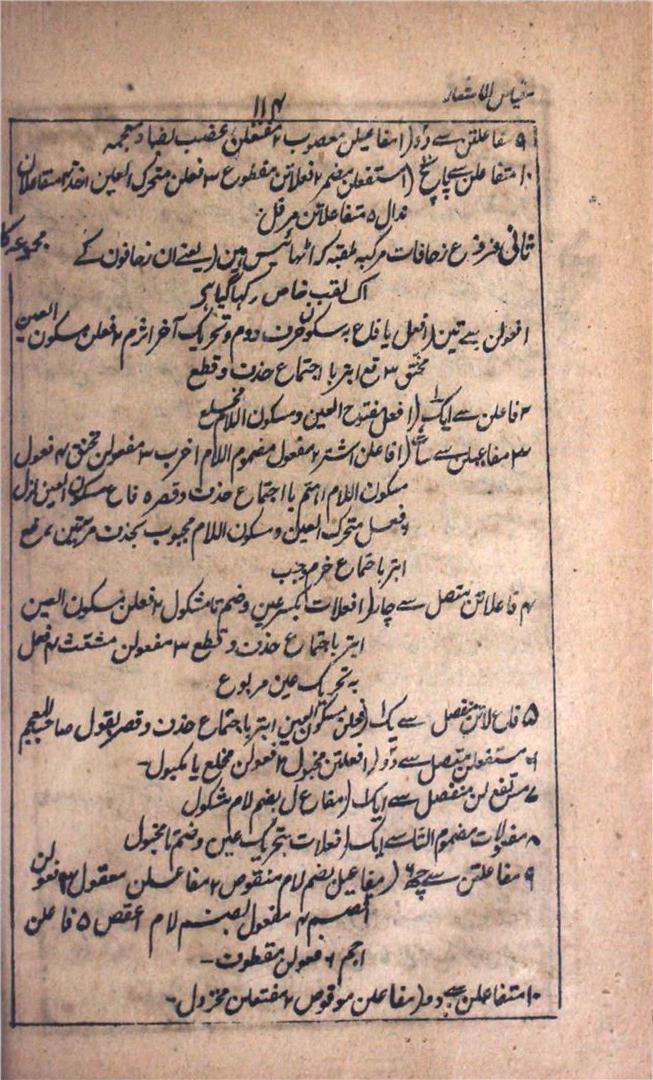 مقیاس الاشعار
۱۱۴
۹ مفاعلتن سے دو (۱ مفاعیلن معصوب ۲ مفتعلن عضب بضاد معجمہ
۱۰ متفاعلن سے پانچ (۱ مستفعلن مضمر ۲ فعلاتن مقطوع ۳ فعلن متحرک العین احذ ۴ متفاعلان
مذال ۵ متفاعلاتن مرفل
ثانی فروع زحافات مرکبہ ملقبہ کہ اٹھائیس ہین (یعنے ان زحافون کے مجموعہ کا
اک لقب خاص رکہا گیا ہر
۱ فعولن سے تین (۱ فعل یا فاع بہ سکون حرف دوم و تحریک آخر اثرم ۲ فعلن بسکون العین
مخنق ۳ فع ابتر با اجتماع حذف و قطع
۲ فاعلن سے ایک (۱ فعل مفتوح العین و سکون اللام مخلع
۳ مفاعیلن سے سات (۱ فاعلن اشتر ۲ مفعول مضموم اللام اخرب ۳ مفعولن مخنق ۴ فعول
مسکون اللام اہتم با اجتماع حذف و قصر ۵ فاع مسکون العین ازل
۶ فعل متحرک العین و سکون اللام مجبوب بحذف مرتین ۷ فع
ابتر با جتماع خرم و جب
۴ فاعلاتن متصل سے چار (۱ فعلات بکسر عین و ضم تا مشکول ۲ فعلن بسکون العین
ابتر با جتماع حذف و قطع ۳ مفعولن مشعث ۴ فعل
بہ تحریک عین مربوع
۵ فاع لاتن منفصل سے یک (فعلن بسکون العین ابتر با جتماع حذف و قصر بقول صاحب المعجم
۶ مستفعلن متصل سے دو (۱ فعلتن مخبول ۲ فعولن مخلع یا مکبول۔
۷ مس تفع لن منفصل سے ایک (مفاع ل بضم لام مشکول
۸ مفعولات مضموم التا سے ایک (فعلات بتحریک عین و ضم تا مخبول
۹ مفاعلتن سے چھ (مفاعیل بضم لام منقوص ۲ مفاعلن معقول ۳ مفعولن
اقصم ۴ مفعول بضم لام اعقص ۵ فاعلن
اجم ۶ فعولن مقطوف۔
۱۰ متفاعلن سے دو (مفاعلن موقوص ۲ مفتعلن مخزول۔